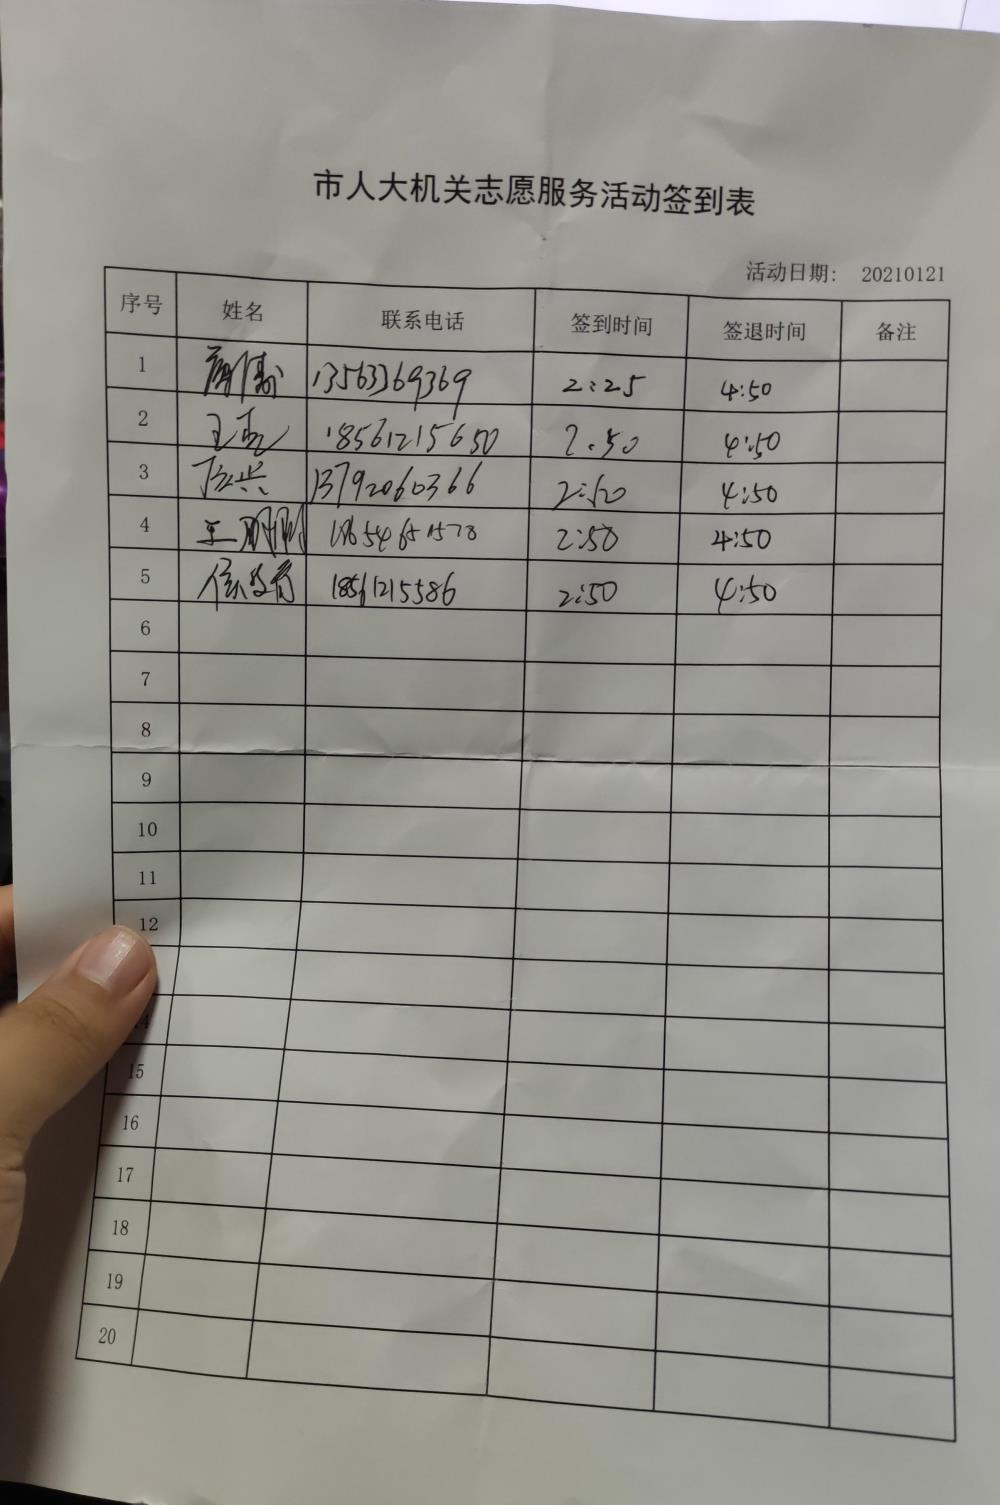 市人大机关志愿服务活动签到表
活动日期: 20210121
序号 姓名 联系电话 签到时间 签退时间 备注
1 13563369369 2:25 4:50
2 18561215650 2:50 4:50
3 13792060366 2:50 4:50
4 王 2:50 4:50
5 18561215586 2:50 4:50
6
7
8
9
10
11
12
15
16
17
18
19
20